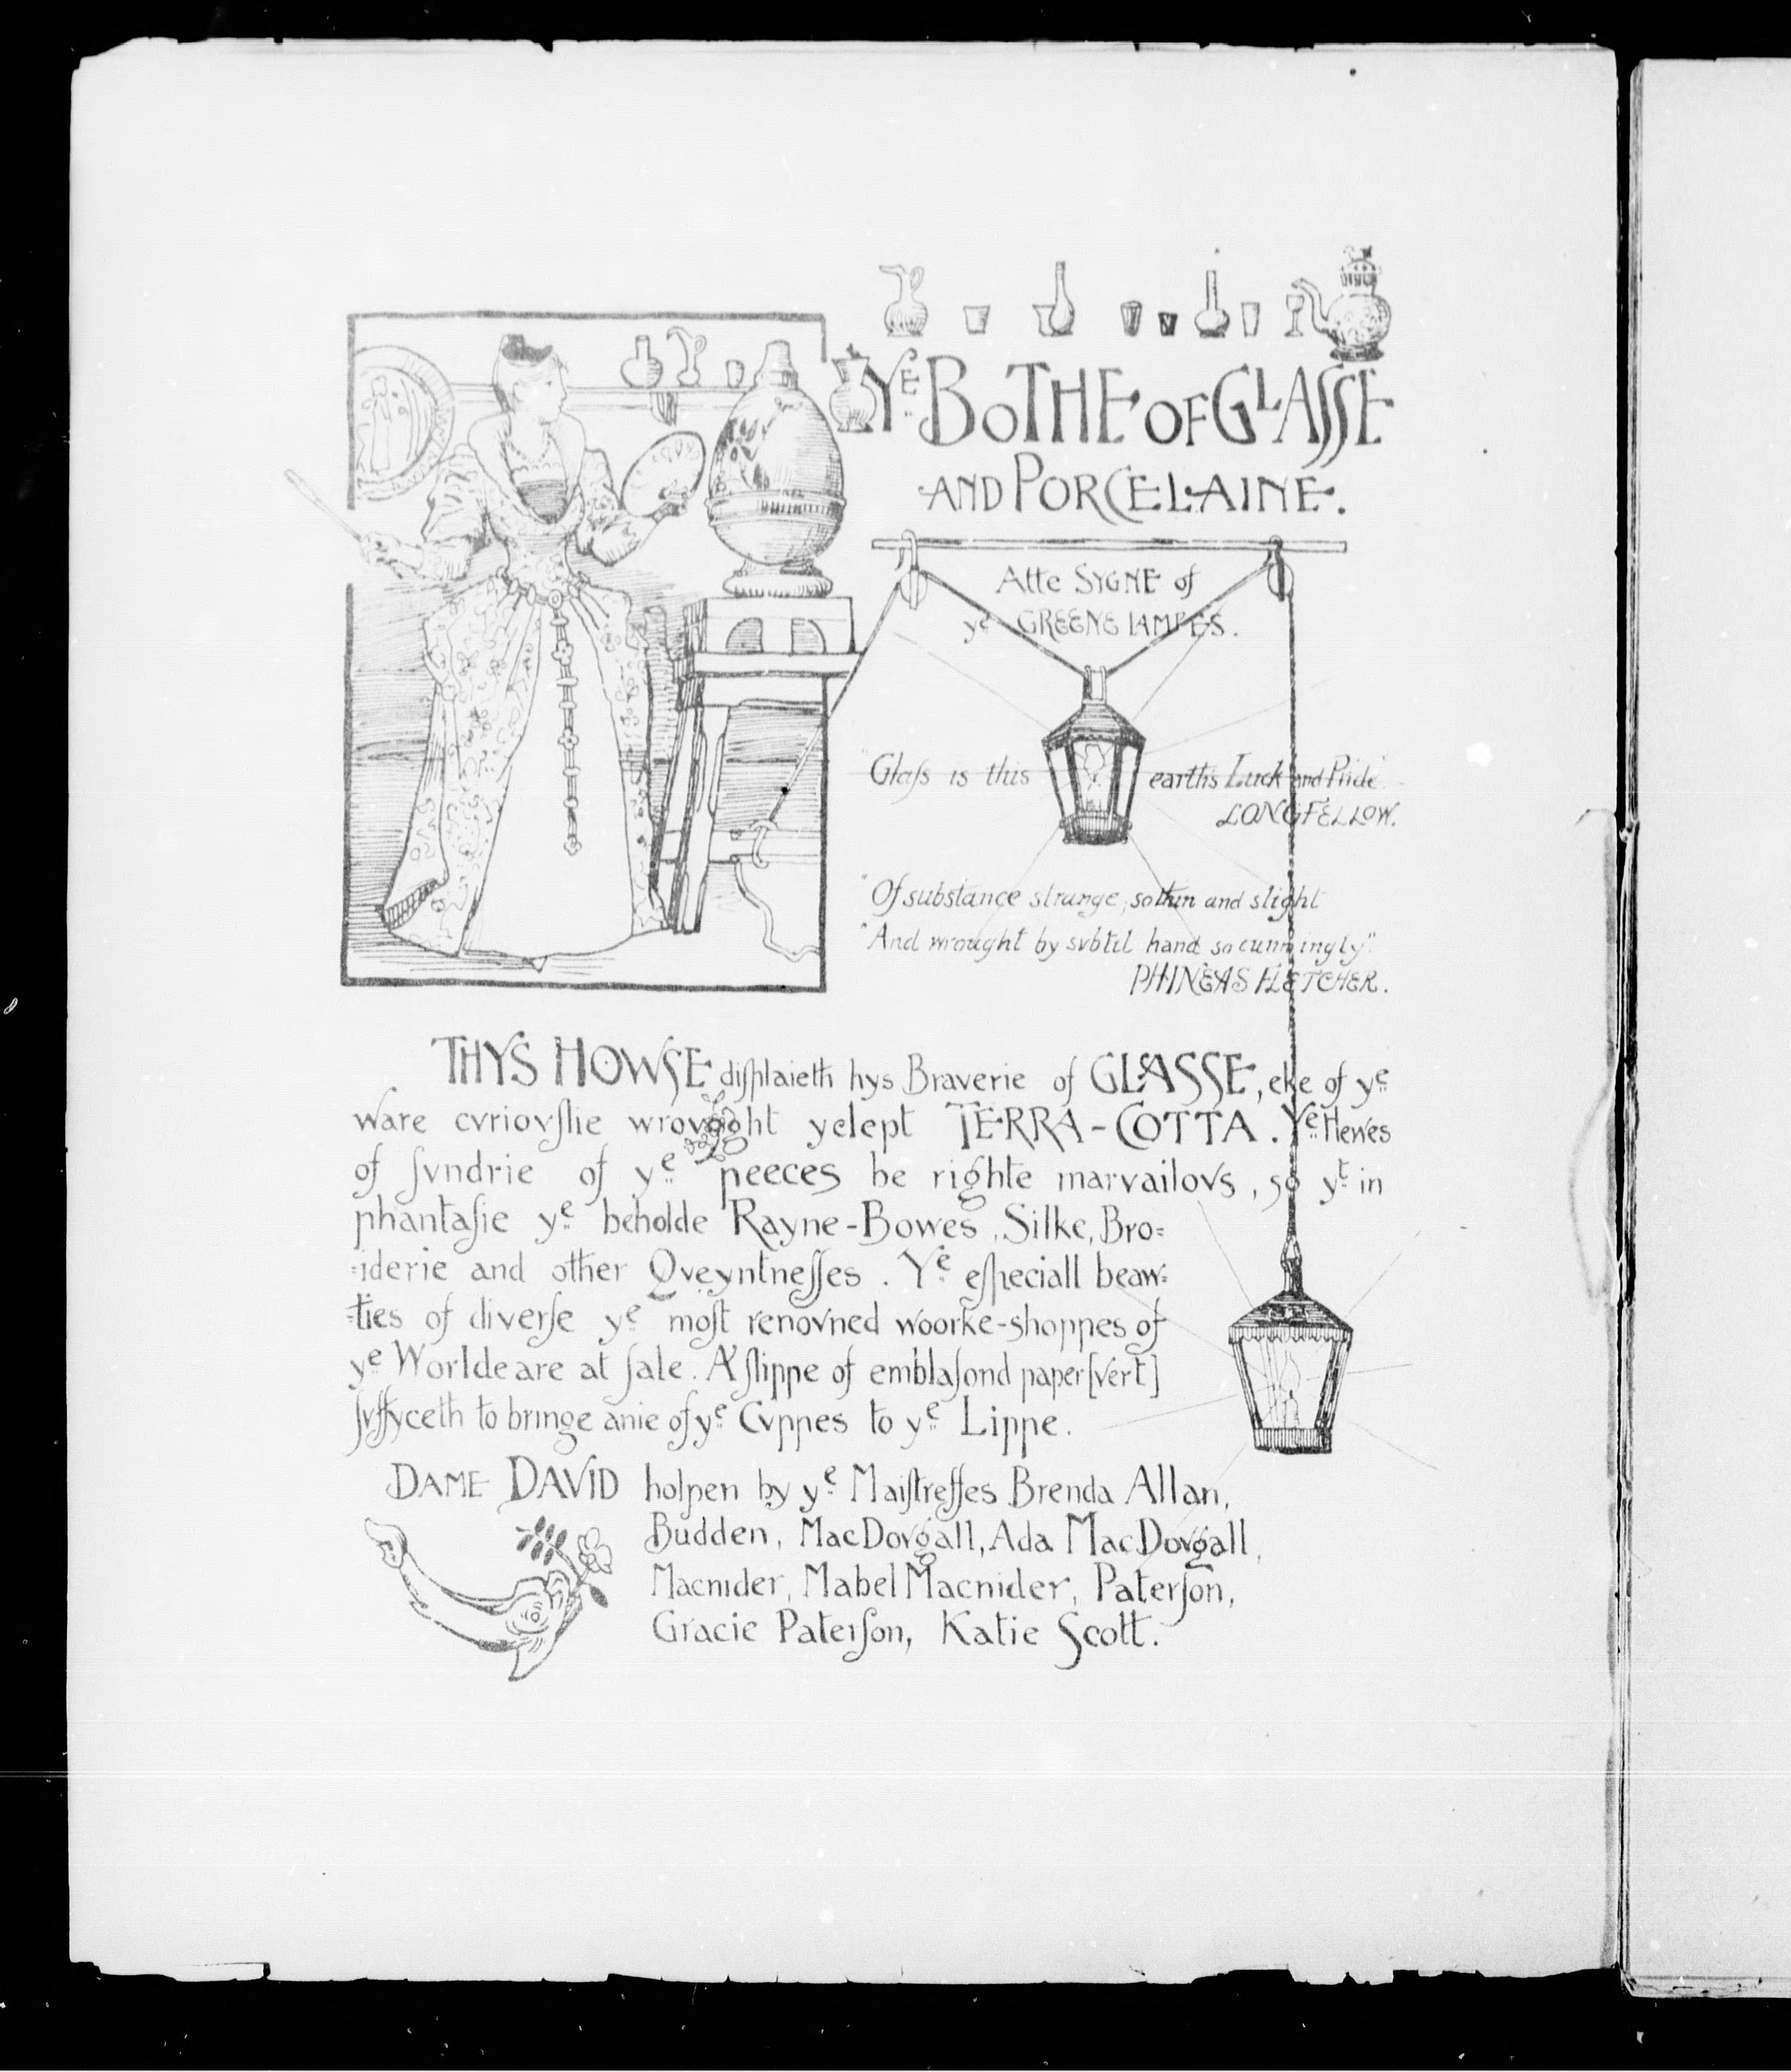 Yᴱ BOTHE OF GLASSE
AND PORCELAINE.
Atte SYGNE of
yᵉ GREENE LAMPES.
"Glaſs is this earth's Luck and Pride"
LONGFELLOW.
"Of substance strange, so thin and slight
"And wrought by svbtil hand so cunningly"
PHINEAS FLETCHER.
THYS HOWSE diſplaieth hys Braverie of GLASSE, eke of yᵉ
ware cvriovſlie wrovght yclept TERRA-COTTA. Yᵉ Hewes
of ſvndrie of yᵉ peeces be righte marvailovs, so yᵗ in
phantaſie yᵉ beholde Rayne-Bowes, Silke, Bro=
=iderie and other Qveyntneſſes. Yᵉ eſpeciall beaw=
=ties of diverſe yᵉ moſt renovned woorke-shoppes of
yᵉ Worlde are at ſale. A ſlippe of emblaſond paper [vert]
ſvffyceth to bringe anie of yᵉ Cvppes to yᵉ Lippe.
DAME DAVID holpen by yᵉ Maiſtreſſes Brenda Allan,
Budden, MacDovgall, Ada MacDovgall,
Macnider, Mabel Macnider, Paterſon,
Gracie Paterſon, Katie Scott.